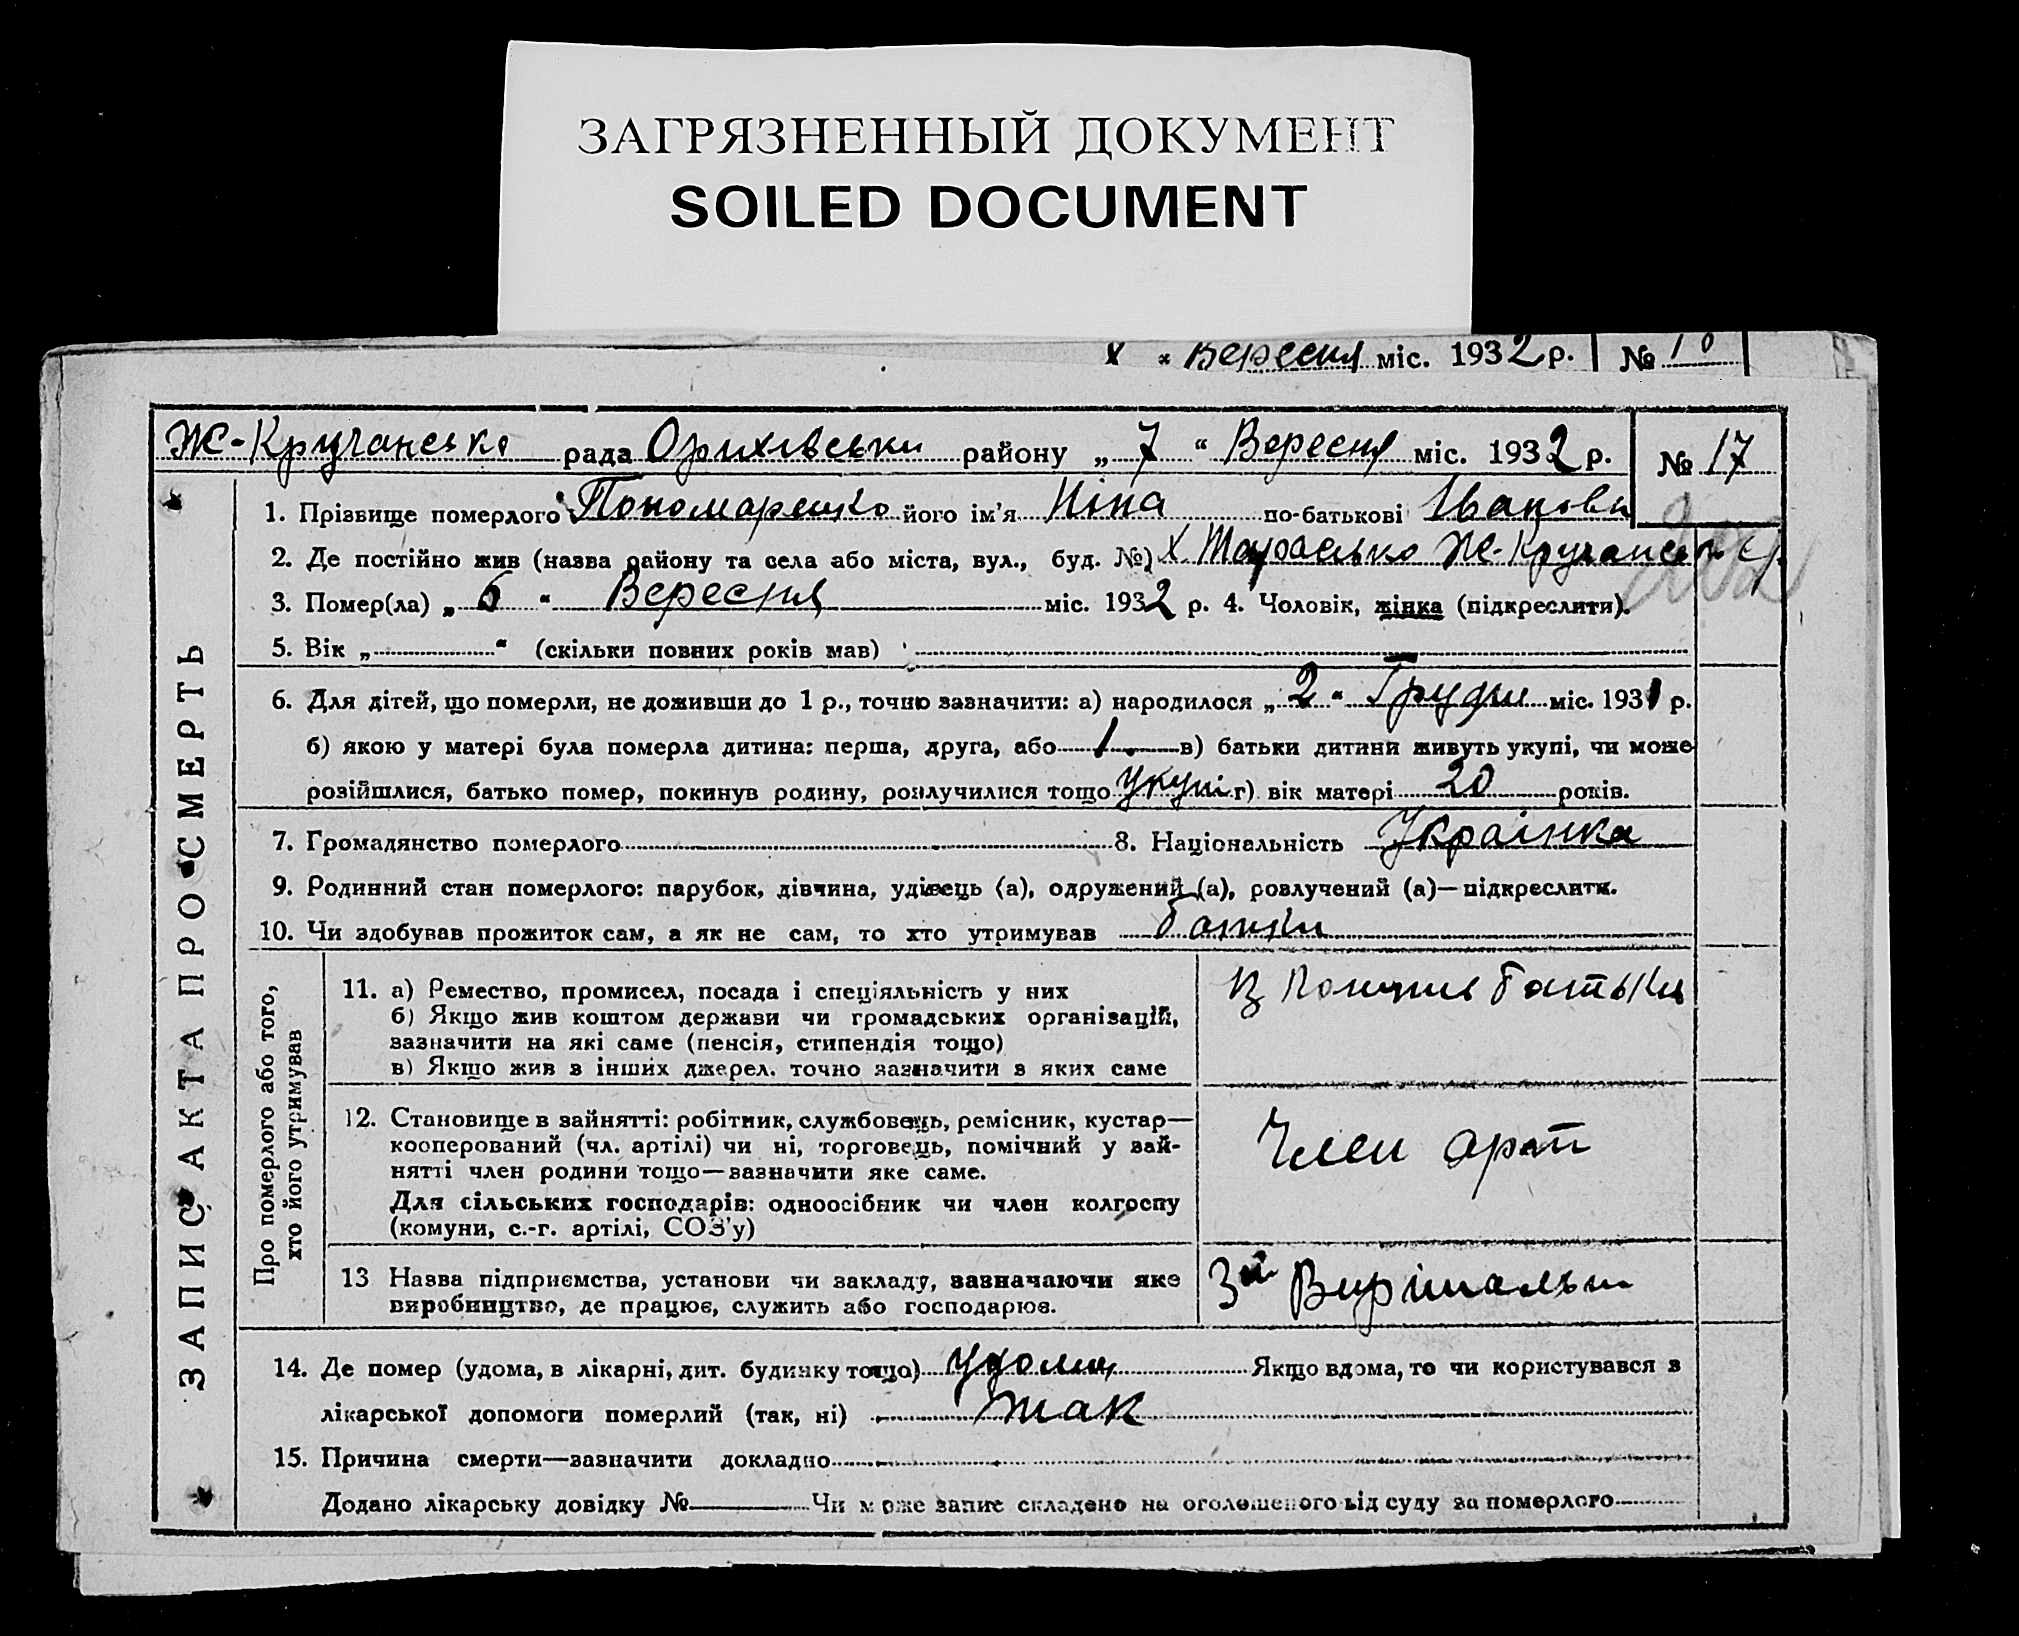 ЗАГРЯЗНЕННЫЙ ДОКУМЕНТ
SOILED DOCUMENT
х “ Вересня міс. 1932 р. №
Ж-Кручанська рада Оріхівськи району „ 7 “ Вересня міс. 1932 р. № 17
ЗАПИС АКТА ПРО СМЕРТЬ
1. Прізвище померлого Пономаренко його ім’я Ніна по-батькові Івановн
2. Де постійно жив (назва району та села або міста, вул., буд. №) Х Тарасівко Ж-Кручанськ
3. Помер(ла) „ 6 “ Вересня міс. 1932 р. 4. Чоловік, жінка (підкреслити).
5. Вік „ “ (скільки повних років мав)
6. Для дітей, що померли, не доживши до 1 р., точно зазначити: а) народилося „ 2 “ Грудня міс. 1931 р.
б) якою у матері була померла дитина: перша, друга, або 1. в) батьки дитини живуть укупі, чи може
розійшлися, батько помер, покинув родину, розлучилися тощо укупі г) вік матері 20 років.
7. Громадянство померлого 8. Національність Українка
9. Родинний стан померлого: парубок, дівчина, удівець (а), одружений (а), розлучений (а)—підкреслити.
10. Чи здобував прожиток сам, а як не сам, то хто утримував батьки
Про померлого або того,
хто його утримував
11. а) Ремество, промисел, посада і спеціяльність у них
б) Якщо жив коштом держави чи громадських організацій,
зазначити на які саме (пенсія, стипендія тощо)
в) Якщо жив з інших джерел. точно зазначити з яких саме
батьки
12. Становище в зайнятті: робітник, службовець, ремісник, кустар—
кооперований (чл. артілі) чи ні, торговець, помічний у зай-
нятті член родини тощо—зазначити яке саме.
Для сільських господарів: одноосібник чи член колгоспу
(комуни, с.-г. артілі, СОЗ’у)
Член арт
13 Назва підприємства, установи чи закладу, зазначаючи яке
виробництво, де працює, служить або господарює.
3й Вирішальн
14. Де помер (удома, в лікарні, дит. будинку тощо) удома Якщо вдома, то чи користувався з
лікарської допомоги померлий (так, ні) так
15. Причина смерти—зазначити докладно
Додано лікарську довідку № Чи може запис складено на оголошеного від суду за померлого